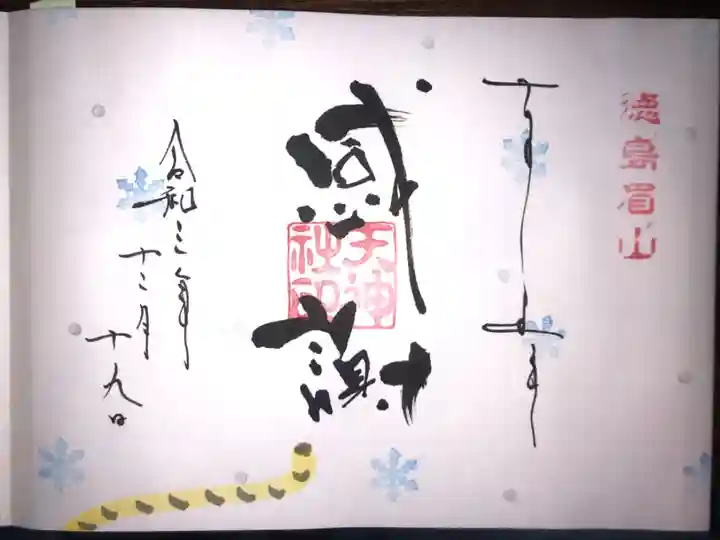 徳島眉山
感謝
天神
社印
令和三年
十二月
十九日